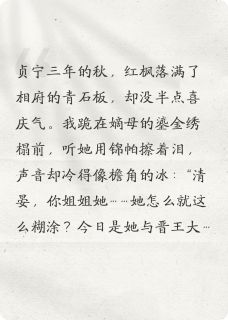 贞宁三年的秋，红枫落满了
相府的青石板，却没半点喜
庆气。我跪在嫡母的鎏金绣
榻前，听她用锦帕擦着泪，
声音却冷得像檐角的冰：“清
晏，你姐姐她……她怎么就这
么糊涂？今日是她与晋王大…